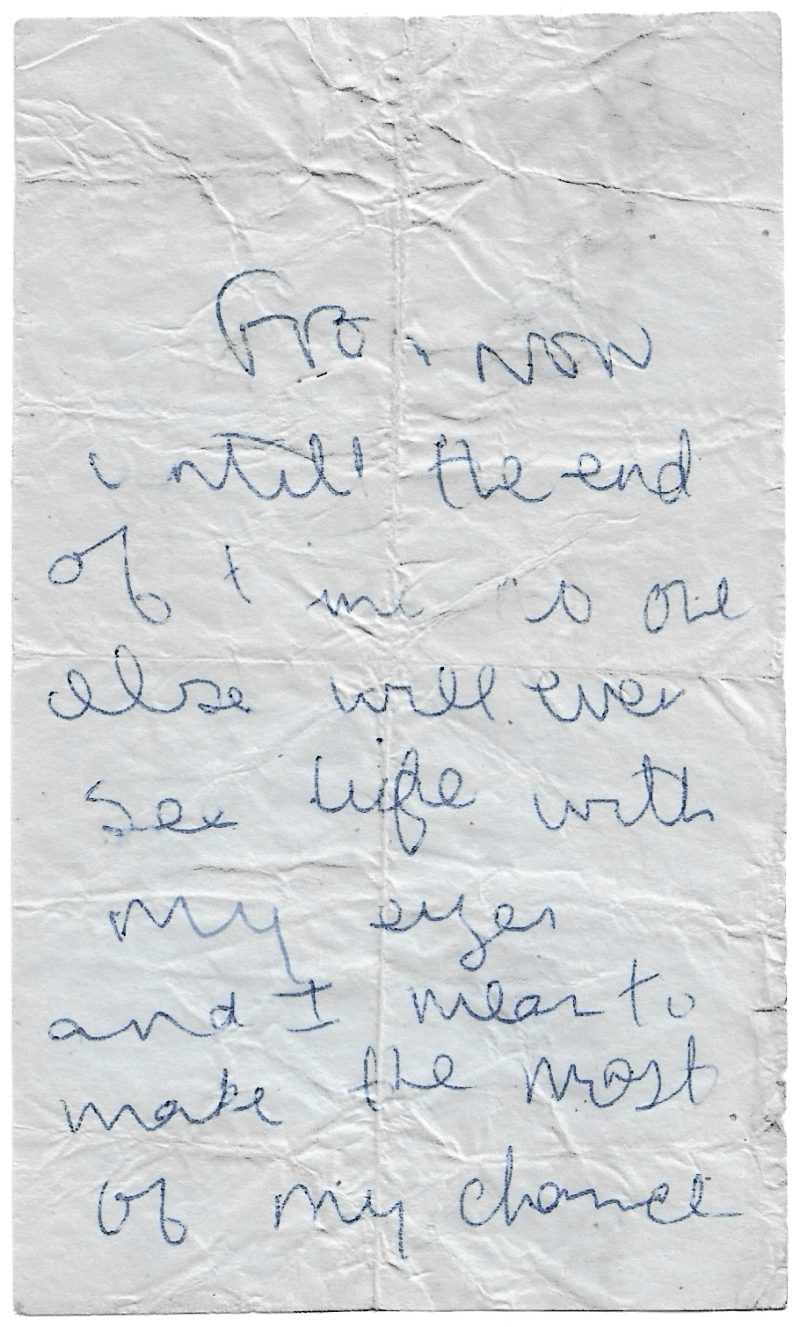 From now
untill the end
of time no one
else will ever
see life with
my eyes
and I mean to
make the most
of my chance